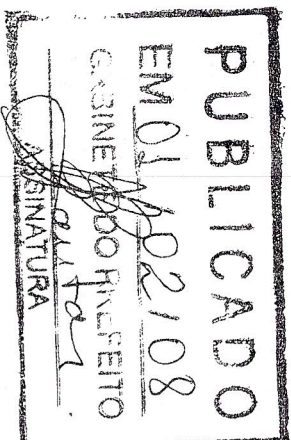 PUBLICADO
EM 01/02/08
GABINETE DO PREFEITO
ASSINATURA